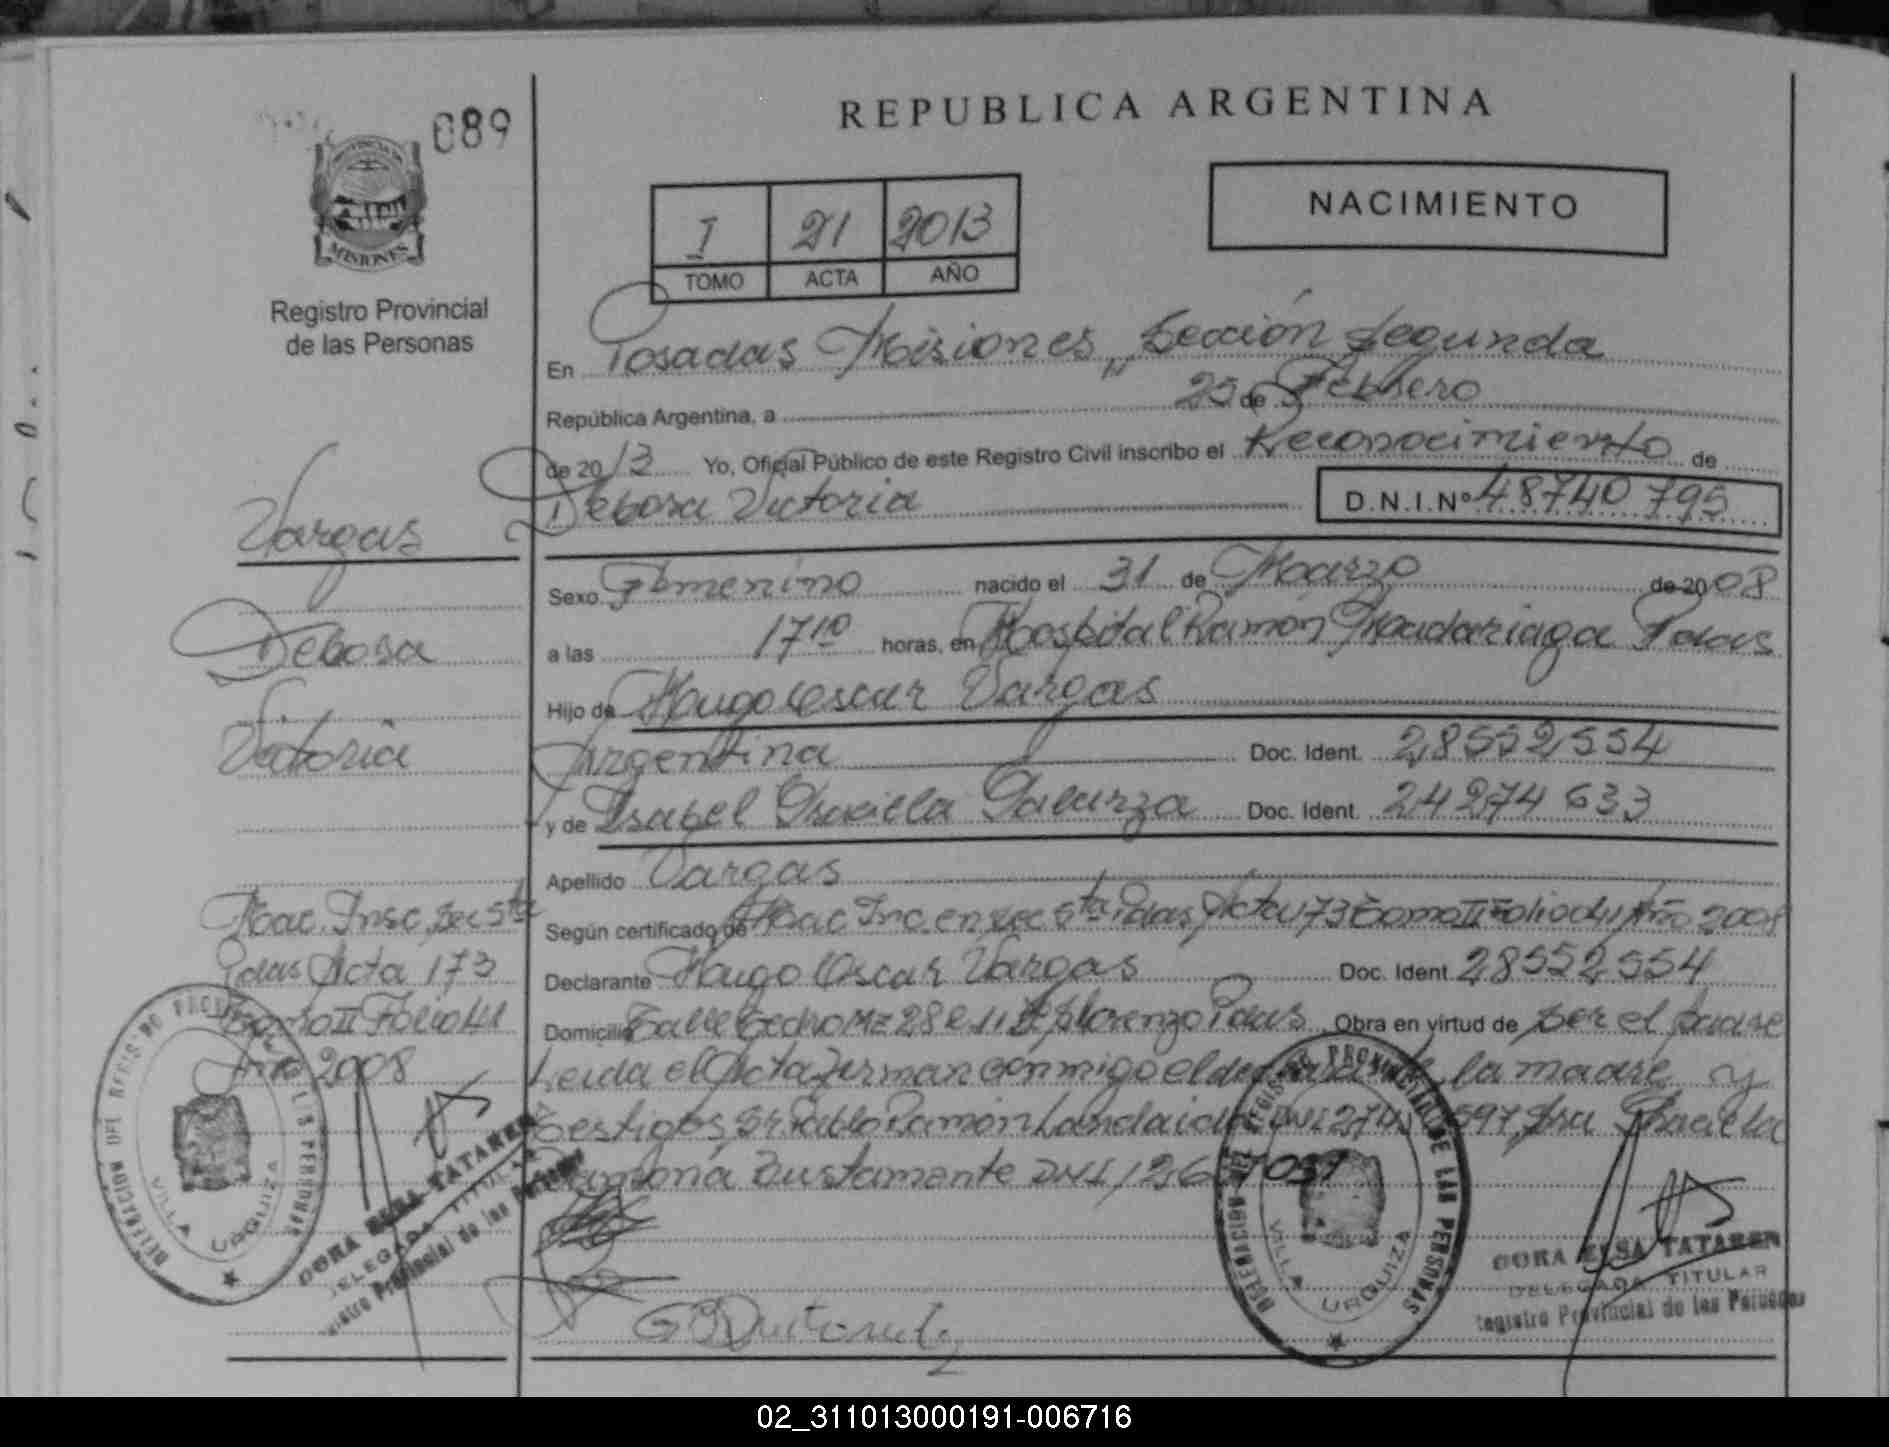 089
REPUBLICA ARGENTINA
PROVINCIA DE
MISIONES
Registro Provincial
de las Personas
I 21 2013
TOMO ACTA AÑO
NACIMIENTO
En Posadas Misiones, Sección Segunda
República Argentina, a 25 de Febrero
de 2013 Yo, Oficial Público de este Registro Civil inscribo el Reconocimiento de
Debora Victoria D.N.I.Nº 48740795
Vargas
Debora
Victoria
Sexo Femenino nacido el 31 de Marzo de 2008
a las 17 10 horas, en Hospital Ramón Madariaga Pdas
Hijo de Hugo Oscar Vargas
Argentina Doc. Ident. 28552554
y de Isabel Graciela Doc. Ident. 24274633
Apellido Vargas
Nac. Insc. Sec 5ta
Pdas Acta 173
Tomo II Folio 41
Año 2008
Según certificado de Nac Inc. en Sec 5ta Pdas Acta 173 Tomo II Folio 041 Año 2008
Declarante Hugo Oscar Vargas Doc. Ident. 28552554
Domicilio Calle Mz 28 Pdas Obra en virtud de Ser el padre
Leida el Acta firman conmigo el la madre y
testigos, Sr Pablo Ramón DNI Sra Graciela
Ramona Bustamante DNI
DELEGACION DEL REGISTRO PROVINCIAL DE LAS PERSONAS
VILLA URQUIZA
DORA ELSA TATAREN
DELEGADA TITULAR
Registro Provincial de las Personas
DELEGACION DEL REGISTRO PROVINCIAL DE LAS PERSONAS
VILLA URQUIZA
DORA ELSA TATAREN
DELEGADA TITULAR
Registro Provincial de las Personas
02_311013000191-006716